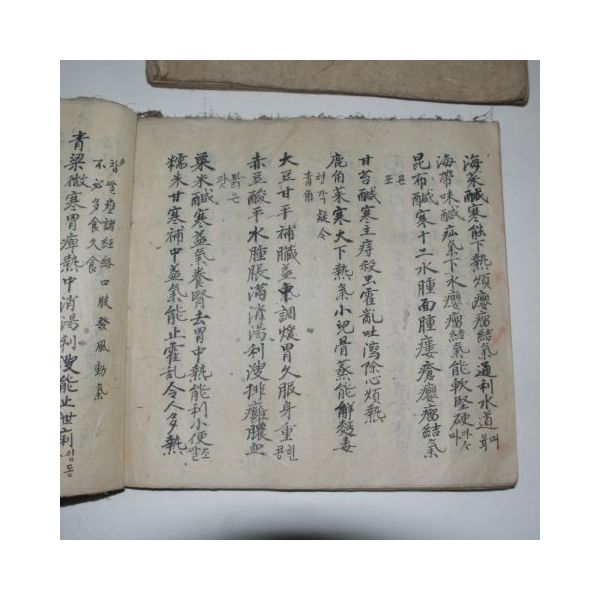 海菜醎寒能下熱煩癭瘤結氣通利水道 며육
海帶味醎疝氣下水癭瘤結氣能軟堅硬 다사마
昆布醎寒十二水腫面腫瘻瘡癭瘤結氣
곤포
甘苔醎寒主痔殺虫霍亂吐瀉除心煩熱
鹿角菜寒大下熱氣小兒骨蒸能解麵毒
青角 청각 疑令
大豆甘平補臟益氣調煖胃久服身重 흰콩
赤豆酸平水腫脹滿消渴利溲排癰膿血
붉은팟
粟米醎寒益氣養腎去胃中熱能利小便 조쌀
糯米甘寒補中益氣能止霍乱令人多熱
찹쌀 壅諸經絡四肢發風動氣
不必多食久食
青粱微寒胃痺熱中消渴利溲能止世利